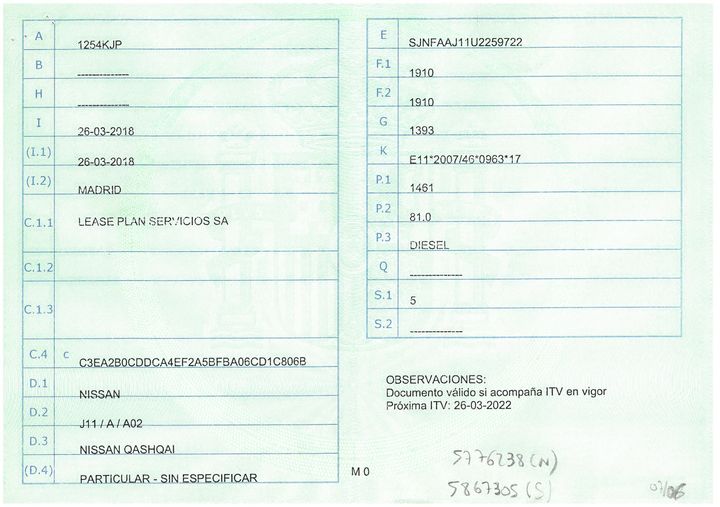 A 1254KJP
B --------------
H --------------
I 26-03-2018
(I.1) 26-03-2018
(I.2) MADRID
C.1.1 LEASE PLAN SERVICIOS SA
C.1.2
C.1.3
C.4 c C3EA2B0CDDCA4EF2A5BFBA06CD1C806B
D.1 NISSAN
D.2 J11 / A / A02
D.3 NISSAN QASHQAI
(D.4) PARTICULAR - SIN ESPECIFICAR
E SJNFAAJ11U2259722
F.1 1910
F.2 1910
G 1393
K E11*2007/46*0963*17
P.1 1461
P.2 81.0
P.3 DIESEL
Q --------------
S.1 5
S.2 --------------
OBSERVACIONES:
Documento válido si acompaña ITV en vigor
Próxima ITV: 26-03-2022
M 0
5776238 (N)
5867305 (S)
07/06